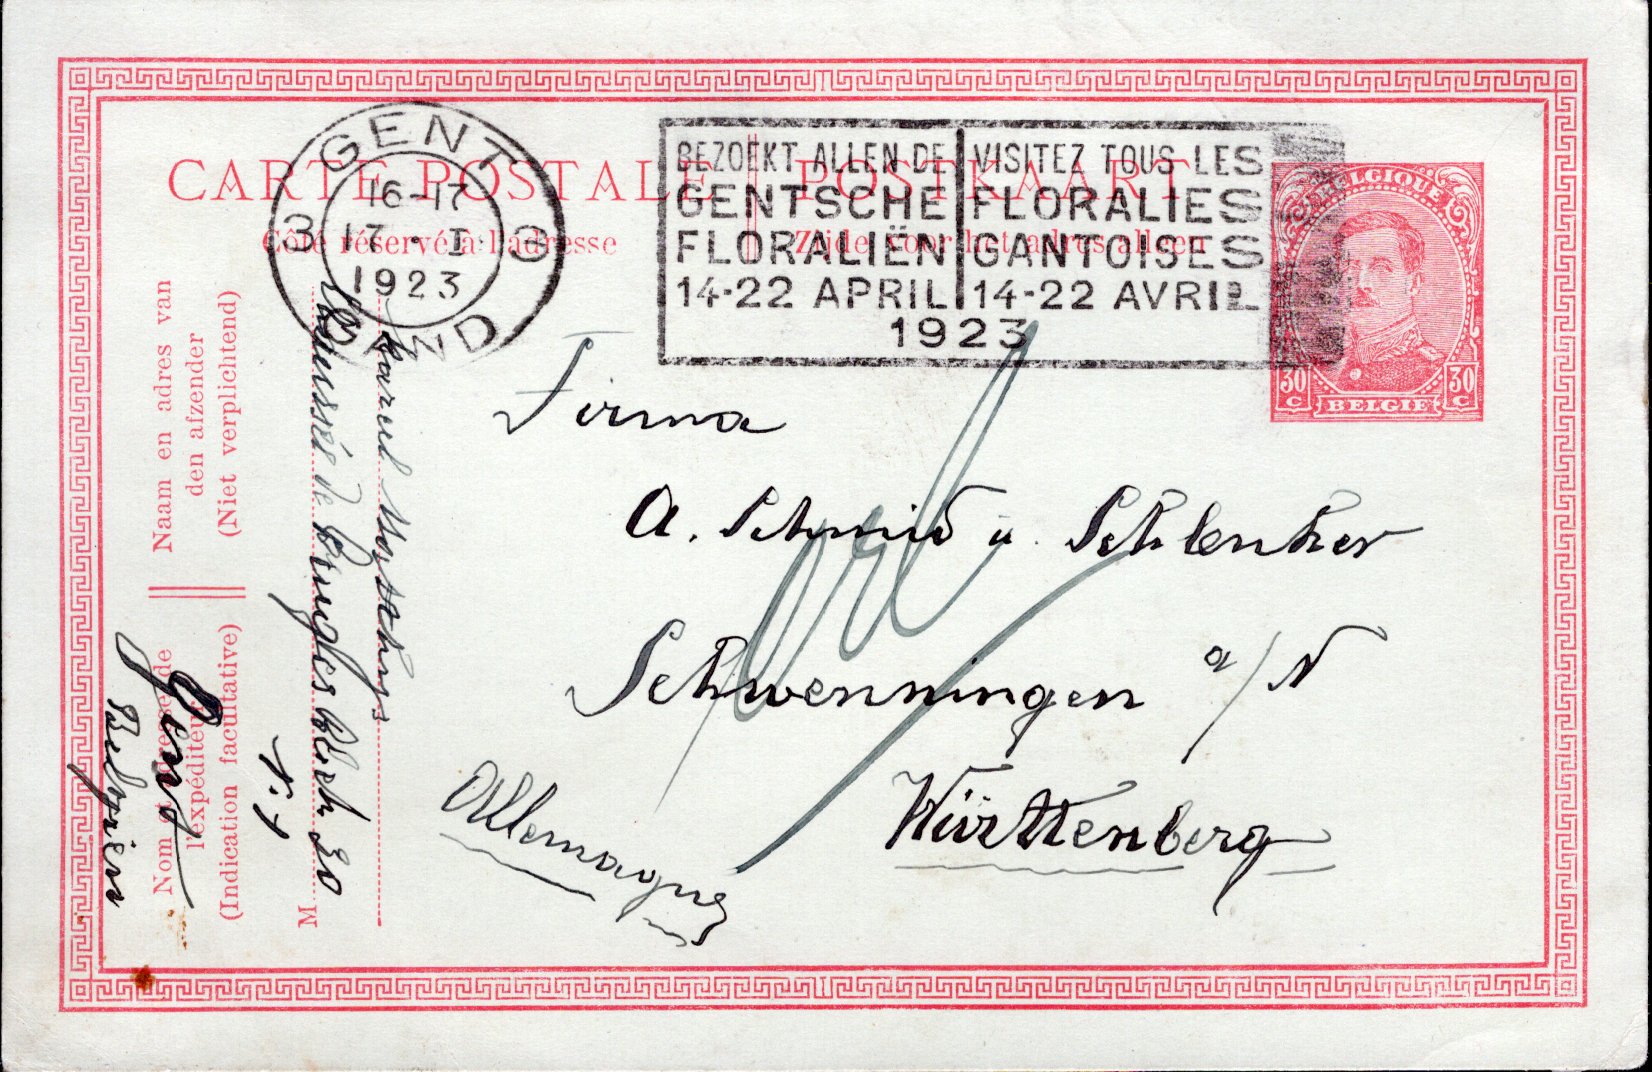 CARTE POSTALE
POSTKAART
Côté réservé à l'adresse
Zijde voor het adres alleen
GENT
3 3
16-17
17 · I
1923
GAND
BEZOEKT ALLEN DE
GENTSCHE
FLORALIËN
14-22 APRIL
VISITEZ TOUS LES
FLORALIES
GANTOISES
14-22 AVRIL
1923
BELGIQUE
30 C
30 C
BELGIË
Firma
A. Schmid u. Schlenker
Schwenningen a/N
Württenberg
Allemagne
Naam en adres van
den afzender
(Niet verplichtend)
Nom et adresse de
l'expéditeur
(Indication facultative)
M
Chaussée de Bruges
20
Gent
Belgien